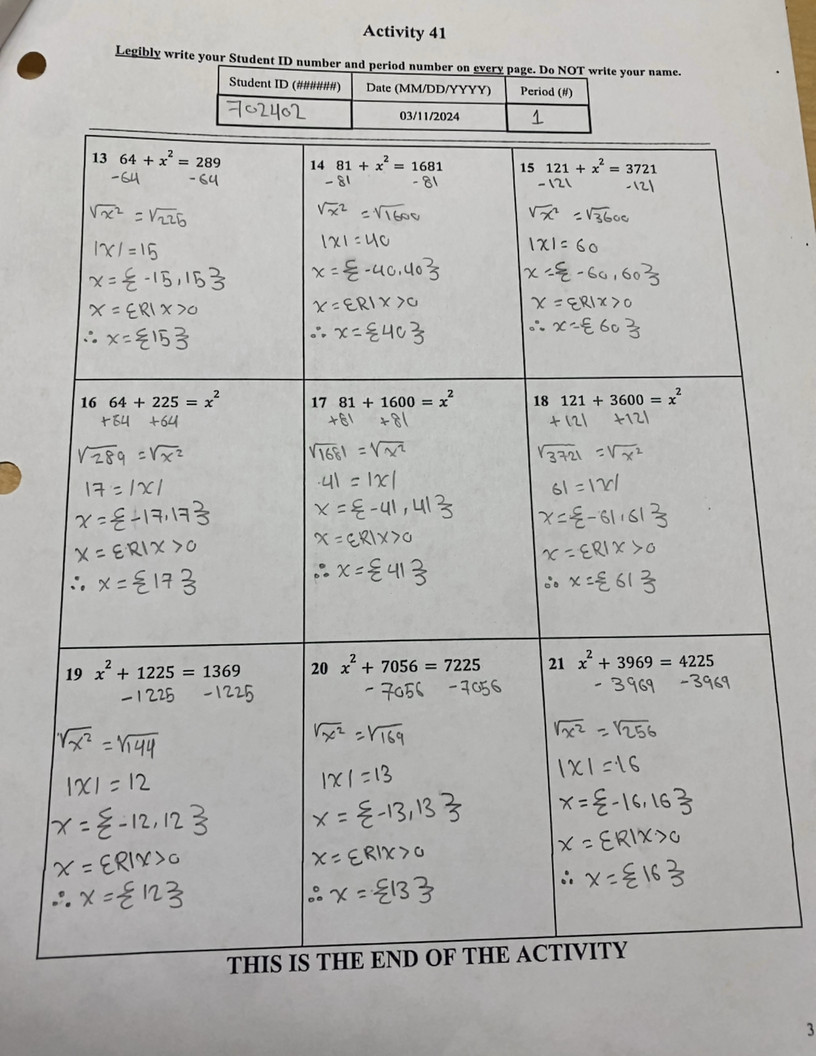 Activity 41
Legibly write your Student ID number and period number on every page. Do NOT write your name.
Student ID (######) Date (MM/DD/YYYY) Period (#)
702402 03/11/2024 1
13 64 + x² = 289
-64 -64
√x² = √225
|x| = 15
x = {-15, 15}
x = ℰR|x>0
∴ x = {15}
14 81 + x² = 1681
-81 -81
√x² = √1600
|x| = 40
x = {-40, 40}
x = ℰR|x>0
∴ x = {40}
15 121 + x² = 3721
-121 -121
√x² = √3600
|x| = 60
x = {-60, 60}
x = ℰR|x>0
∴ x = {60}
16 64 + 225 = x²
+64 +64
√289 = √x²
17 = |x|
x = {-17, 17}
x = ℰR|x>0
∴ x = {17}
17 81 + 1600 = x²
+81 +81
√1681 = √x²
41 = |x|
x = {-41, 41}
x = ℰR|x>0
∴ x = {41}
18 121 + 3600 = x²
+121 +121
√3721 = √x²
61 = |x|
x = {-61, 61}
x = ℰR|x>0
∴ x = {61}
19 x² + 1225 = 1369
-1225 -1225
√x² = √144
|x| = 12
x = {-12, 12}
x = ℰR|x>0
∴ x = {12}
20 x² + 7056 = 7225
-7056 -7056
√x² = √169
|x| = 13
x = {-13, 13}
x = ℰR|x>0
∴ x = {13}
21 x² + 3969 = 4225
-3969 -3969
√x² = √256
|x| = 16
x = {-16, 16}
x = ℰR|x>0
∴ x = {16}
THIS IS THE END OF THE ACTIVITY
3